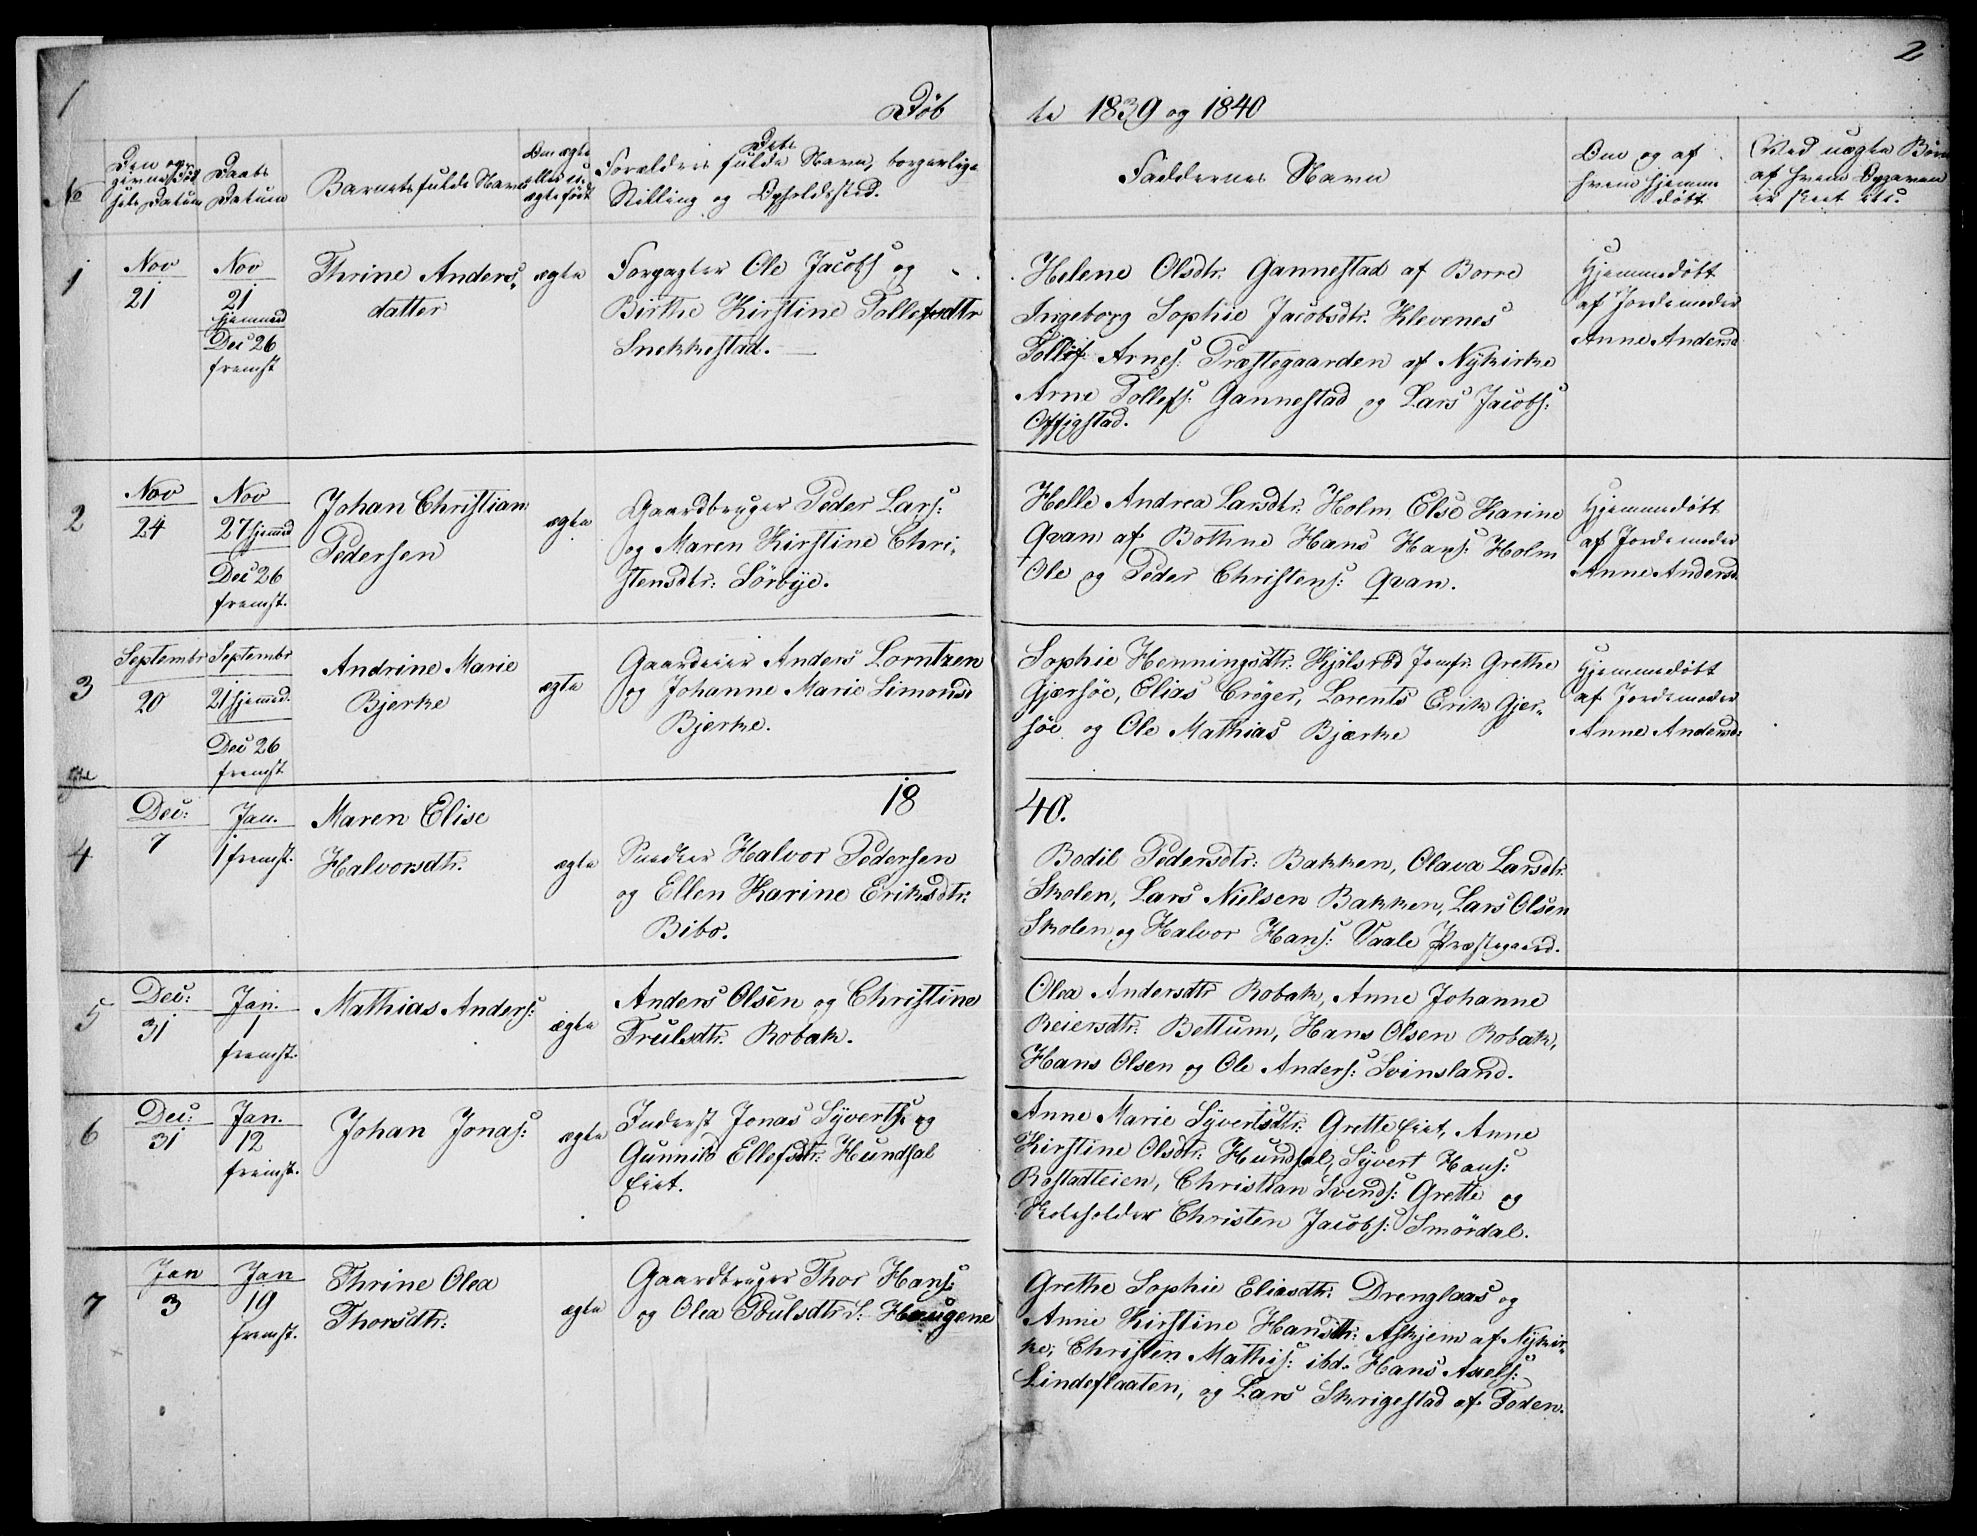 1
2
Döb
te 1839 og 1840
No
Den op-
givne Föd
sels Datum
Daabs
Datum
Barnets fulde Navn
Om ægte
eller u-
ægte födt
Dets
Forældres fulde Navn, borgerlige
Stilling og Opholdssted.
Faddernes Navn
Om og af
hvem hjemme
döbt
Ved uægte Börn
af hvem Opgaven
er skeet etc.
1
Nov
21
Nov
21
hjemmed
Dec 26
fremst
Thrine Anders,
datter
ægte
Forpagter Ole Jacobs og
Birthe Kirstine Tollefsdtr
Snekkestad.
Helene Olsdtr. Gannestad af Borre
Ingeborg Sophie Jacobsdtr. Klevenes
Tollef Arnes: Præstegaarden af Nykirke
Arne Tollefs: Gannestad og Lars Jacobs:
Hjemmedöbt
af Jordemoder
Anne Andersd
2
Nov
24
Nov
27 hjemmd
Dec 26
fremst.
Johan Christian
Pedersen
ægte
Gaardbruger Peder Lars:
og Maren Kirstine Chri,
stensdtr: Sörbye.
Helle Andrea Larsdtr. Holm Else Karine
Qvan af Bothne Hans Hans: Holm
Ole og Peder Christens: Qvan.
Hjemmedöbt
af Jordemoder
Anne Andersd.
3
Septembr
20
Septembr
21 hjemmed.
Dec 26
fremst
Andrine Marie
Bjerke
ægte
Gaardeier Anders Lorntzen
og Johanne Marie Simonsd
Bjerke.
Sophie Henningsdtr. Kjölsröd Jomfr. Grethe
Gjersöe, Elias Cröger, Lorents Erik Gjer-
söe og Ole Mathias Bjærke
Hjemmedöbt
af Jordemoder
Anne Andersd:
18
40.
4
Dec:
7
Jan.
1 fremst.
Maren Elise
Halvorsdtr.
ægte
Snedker Halvor Pedersen
og Ellen Karine Eriksdtr:
Bibo.
Bodil Pedersdtr: Bakken, Olava Larsdtr.
Skolen, Lars Nielsen Bakken, Lars Olsen
Skolen og Halvor Hans: Vaale Præstegaard.
5
Dec:
31
Jan.
1
fremst.
Mathias Anders:
ægte
Anders Olsen og Christine
Trulsdtr. Robak.
Olea Andersdtr Robak, Anne Johanne
Reiersdtr. Bettum, Hans Olsen Robak,
Hans Olsen og Ole Anders: Svinsland.
6
Dec:
31
Jan.
12
fremst.
Johan Jonas:
ægte
Inderst Jonas Syverts: og
Gunnild Ellefsdtr: Hundsal
Eiet.
Anne Marie Syvertsdtr. Gretteeiet, Anne
Kirstine Olsdtr. Hundsal, Syvert Hans:
Rostadteien, Christian Svends: Grette og
Skoleholder Christen Jacobs: Smördal.
7
Jan
3
Jan
19
fremst.
Thrine Olea
Thorsdtr:
ægte
Gaardbruger Thor Hans:
og Olea Poulsdtr. S: Haugene
Grethe Sophie Eliasdtr. Drenglaas og
Anne Kirstine Hansdtr: Askjem af Nykir-
ke, Christen Mathis: ibd. Hans Axels:
Lindeflaaten, og Lars Skrigestad af Foden.